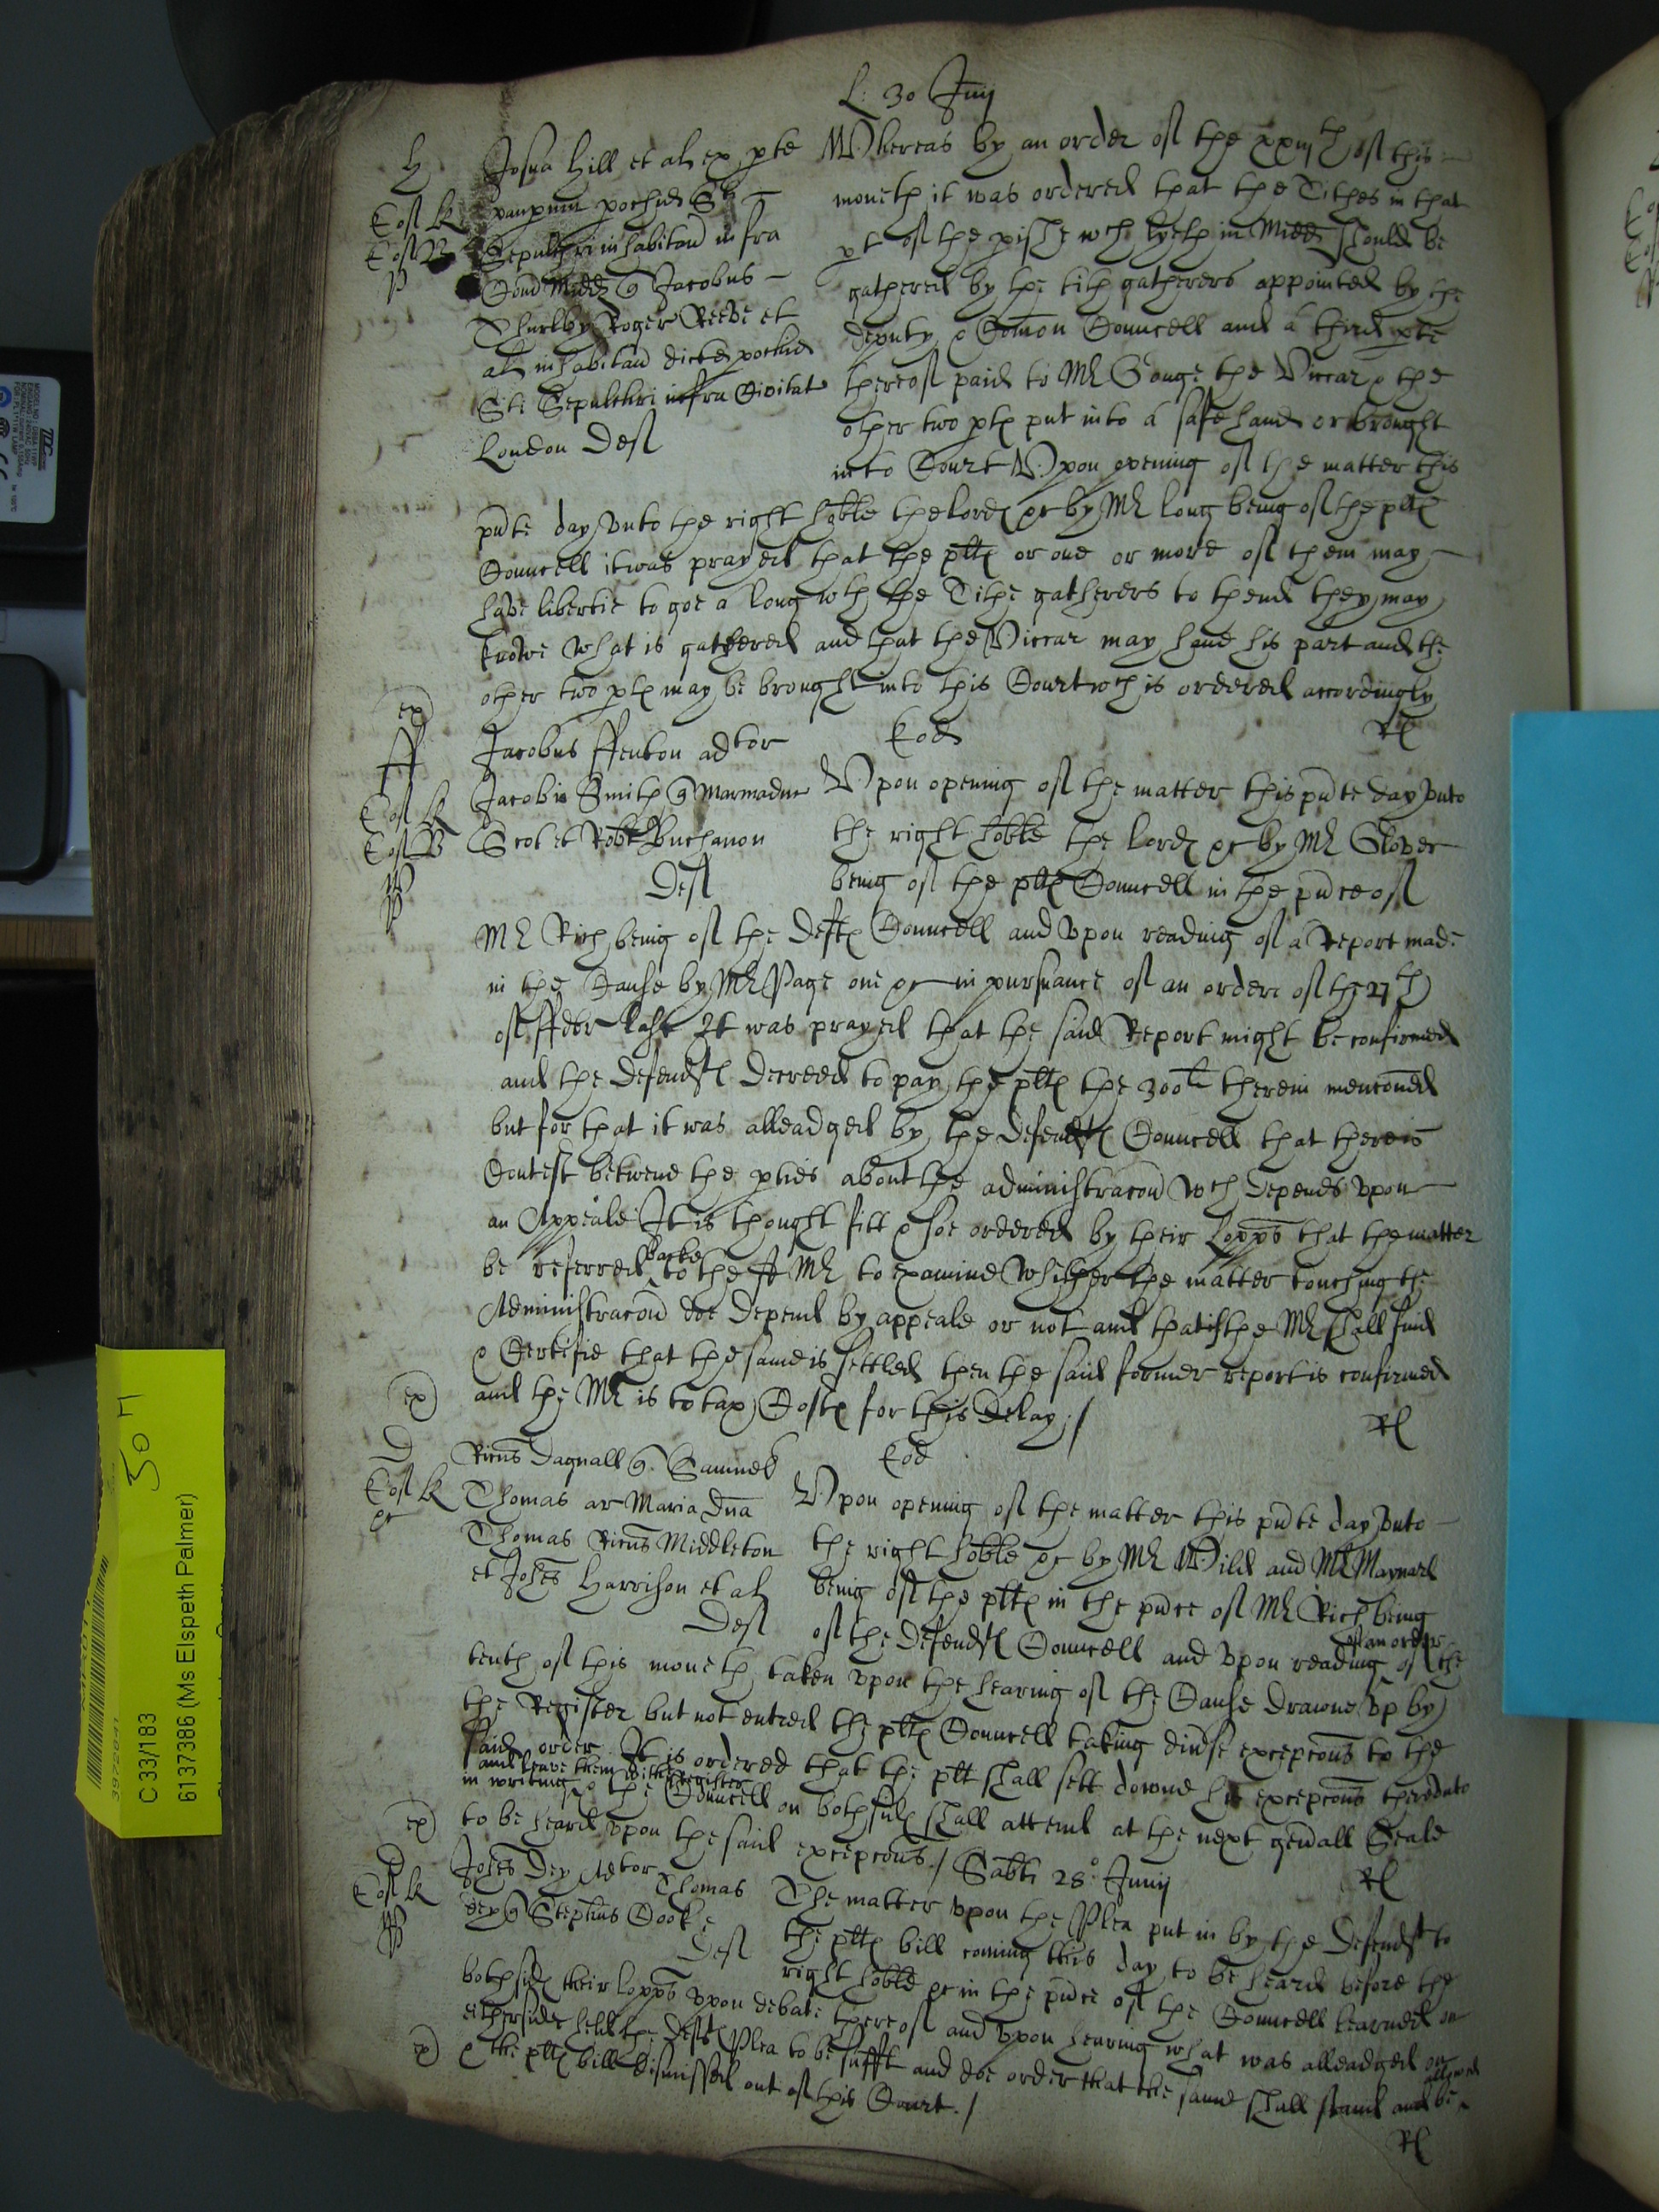 L: 30 Junij
H
Josua Hill et al ex pte
paupium pochie Sti
Sepulchri inhabitan infra
Com Midd q Jacobus
Thurlby Roger Reeve et
al inhabitan dicte pochie
Sti Sepulchri infra Civitat
London Def
Whereas by an order of the xxiijth of this
moneth it was ordered that the Tithes in that
pt of the pishe wch lyeth in Midd should be
gathered by the tith gatherers appointed by the
deputy & Comon Councell and a third pte
thereof paid to Mr Gouge the Viccar & the
other two pts put into a safe hand or brought
into Court Vpon opening of the matter this
pnte day vnto the right hoble the lords &c by Mr Long being of the plts
Councell it was prayed that the plts or one or more of them may
have libertie to goe a long wth the Tithe gatherers to thend they may
knowe what is gathered and that the Viccar may have his part and the
other two pts may be brought into this Court wch is ordered accordingly
Rl
ex
ff
Jacobus ffenton adtor
Jacobi Smith q Marmaduc
Scot et Robt Buchanon
Def
Eod
Vpon opening of the matter this pnte day vnto
the right hoble the lords &c by Mr Glover
being of the plts Councell in the pnce of
Mr Rich being of the Defts Councell and vpon reading of a Report made
in the Cause by Mr Page one &c in pursuance of an order of the 27th
of ffebr last It was prayed that the said Report might be confirmed
and the Defendts Decreed to pay the plts the 300li therein menconed
but for that it was alleadged by the defendts Councell that there is
Contest betwene the pties about the administracon wch depends vpon
an Appeale It is thought fitt & soe ordered by their Lopps that the matter
be referred backe to the sd Mr to examine whither the matter touching the
Administracon doe Depend by appeale or not and that if the Mr shall find
& Certifie that the same is settled then the said former report is confirmed
and the Mr is to tax Costs for this Delay /
Rl
ex
D
Ricus Dagnall q Samuel
Thomas ar Maria Dna
Thomas Ricus Middleton
et Johes Harrison et al
Def
Eod
Vpon opening of the matter this pnte day vnto
the right hoble &c by Mr Wild and Mr Maynard
being of the plts in the pnce of Mr Rich being
of the Defendts Councell and vpon reading of an order of the
tenth of this moneth taken vpon the hearing of the Cause Drawne vp by
the Register but not entred the plts Councell taking divse excepcons to the
said order It is ordered that the plt shall sett downe his excepcons therevnto
in writing and leave them with Register & the Councell on both sids shall attend at the next genall Seale
to be heard vpon the said excepcons /
Rl
ex
D
Johes Dey Actor Thomas
Dey q Stephus Cooke
Def
Sabti 28o Junij
The matter vpon the Plea put in by the Defendt to
the plts bill coming this day to be heard before the
right hoble &c in the pnce of the Councell Learned on
both sids their Lopps vpon debate thereof and vpon hearing what was alleadged on
either side held the Defts Plea to be sufft and doe order that the same shall stand and be allowed
& the plts bill dismissed out of this Court /
Rl
ex
C 33/183
6137386 (Ms Elspeth Palmer)